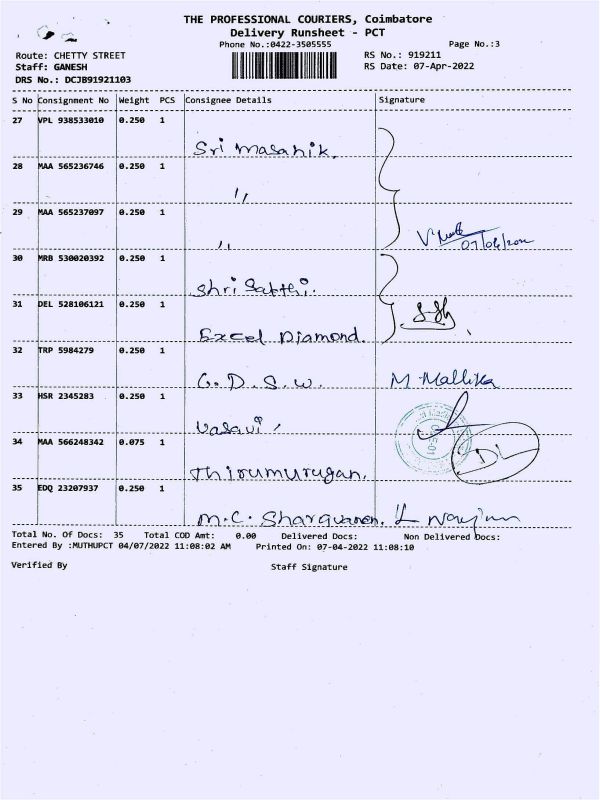 THE PROFESSIONAL COURIERS, Coimbatore
Delivery Runsheet - PCT
Phone No.:0422-3505555
Page No.:3
Route: CHETTY STREET
RS No.: 919211
Staff: GANESH
RS Date: 07-Apr-2022
DRS No.: DCJB91921103
S No Consignment No Weight PCS Consignee Details Signature
27 VPL 938533010 0.250 1
Sri Masanik.
28 MAA 565236746 0.250 1
,,
29 MAA 565237097 0.250 1
,,
30 MRB 530020392 0.250 1
Shri Sakthi.
31 DEL 528106121 0.250 1
Excel Diamond.
32 TRP 5984279 0.250 1
G. D. S. W. M. Mallika
33 HSR 2345283 0.250 1
Vasavi
34 MAA 566248342 0.075 1
DL
Thirumurugan.
35 EDQ 23207937 0.250 1
M.C. 
Total No. Of Docs: 35 Total COD Amt: 0.00 Delivered Docs: Non Delivered Docs:
Entered By :MUTHUPCT 04/07/2022 11:08:02 AM Printed On: 07-04-2022 11:08:10
Verified By Staff Signature